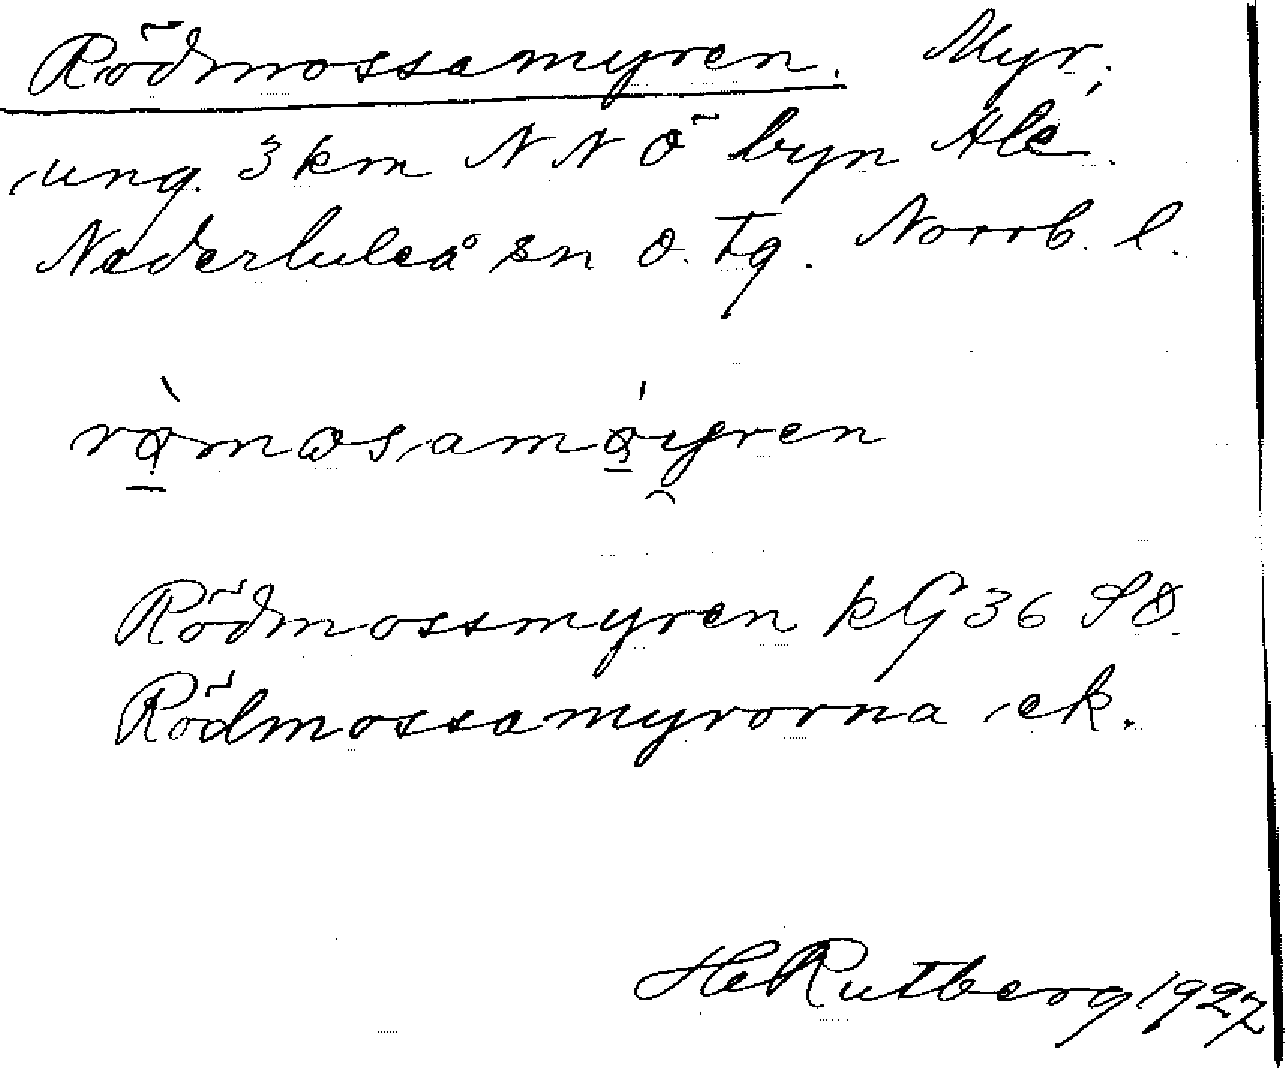 Rödmossamyren. Myr,
ung. 3 km NNÖ byn Ale.
Nederluleå sn o. tg. Norrb. l.
Rödmossmyren kG 36 SO.
Rödmossamyrorna ek.
He Rutberg 1927